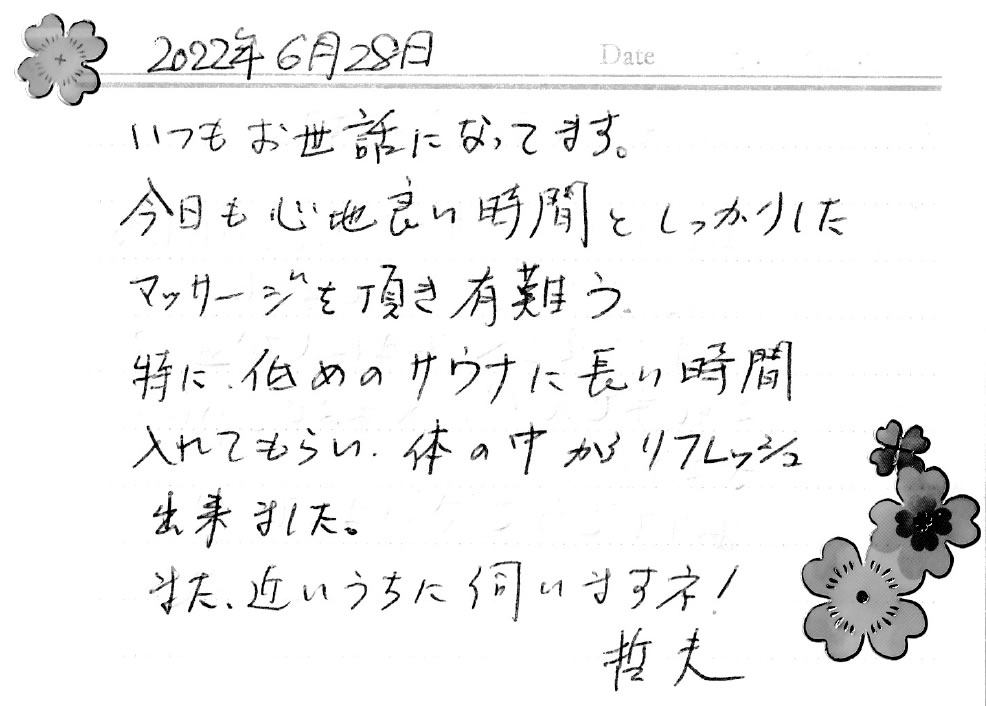 2022年6月28日
Date
いつもお世話になってます。
今日も心地良い時間としっかりした
マッサージを頂き有難う.
特に、低めのサウナに長い時間
入れてもらい、体の中からリフレッシュ
出来ました。
また、近いうちに伺いますネ!
哲夫